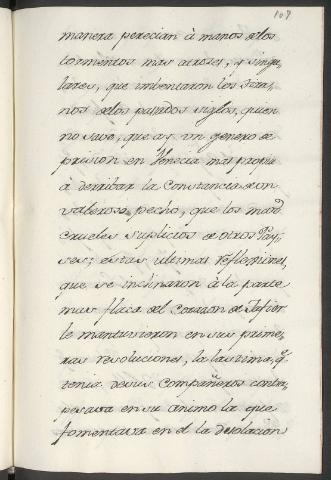 107
manera perecian à manos de los
tormentos mas atroses, y singu,
lares, que intentaron los tira,
nos de los pasados siglos, quien
no save, que ay un genero de
pricion en Venecia mas propia
à derribar la Constancia de un
valeroso pecho, que los mas
crueles suplicios de otros Pay,
ses; estas ultimas reflexiones,
que se inclinaron à la parte
mas flaca del corazon de Jafier
le mantuvieron en sus prime,
ras resoluciones, la lastima, q.
tenia de sus Compañeros contra,
pesava en su animo la que
fomentava en el la desolacion